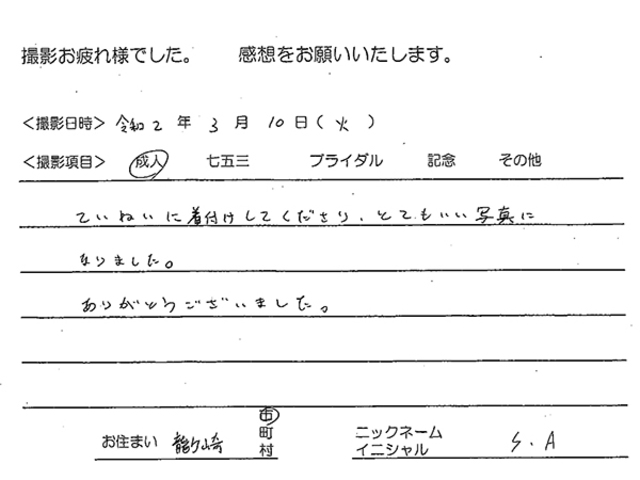 撮影お疲れ様でした。 感想をお願いいたします。
<撮影日時> 令和2年3月10日(火)
<撮影項目> 成人 七五三 ブライダル 記念 その他
ていねいに着付けしてくださり、とてもいい写真に
なりました。
ありがとうございました。
お住まい 龍ケ崎 市町村 ニックネームイニシャル S.A